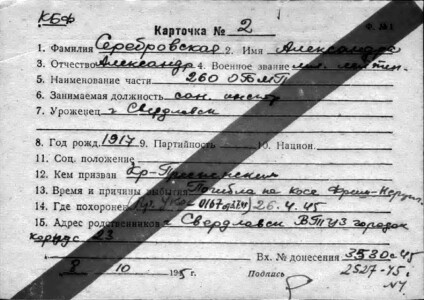 КБФ
Карточка № 2
Ф. №1
1. Фамилия Серебровская 2. Имя Александра
3. Отчество Александр 4. Военное звание мл. лейтен.
5. Наименование части 260 ОБМП
6. Занимаемая должность сан. инстр
7. Уроженец г Свердловск
8. Год рожд. 1917 9. Партийность 10. Национ.
11. Соц. положение
12. Кем призван Кр-Пресненским
13. Время и причины выбытия Погибла на косе Фриш-Нерунг
14. Где похоронен 26.4.45
15. Адрес родственников г Свердловск ВТУЗ городок
корпус 23
Вх. № донесения 3530с-45
8 10 195 г Подпись 2527-45г.
№1